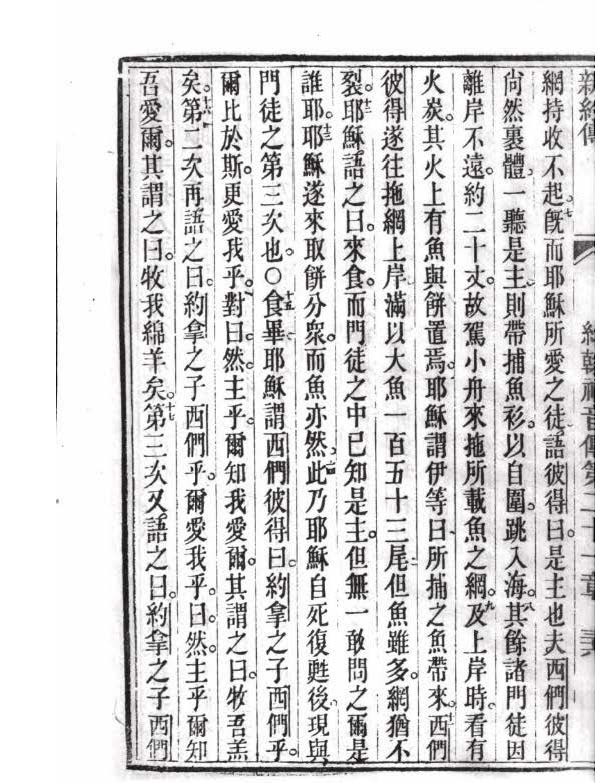 新約傳 約翰福音傳第二十一章
網持收不起。七旣而耶穌所愛之徒、語彼得曰。是主也夫西們彼得
尙然裏體、一聽是主、則帶捕魚衫、以自圍。跳入海。八其餘諸門徒因
離岸不遠。約二十丈。故駕小舟來拖所載魚之網。九及上岸時。看有
火炭。其火上有魚與餅置焉。耶穌謂伊等曰、所捕之魚帶來。十一西們
彼得遂往拖網上岸、滿以大魚一百五十三尾。但魚雖多。網猶不
裂。十二耶穌語之曰。來食。而門徒之中已知是主。但無一敢問之爾是
誰耶。十三耶穌遂來取餅分衆。而魚亦然。十四此乃耶穌自死復甦後、現與
門徒之第三次也。○十五食畢、耶穌謂西們彼得曰。約拿之子西們乎。
爾比於斯。更愛我乎。對曰。然。主乎。爾知我愛爾。其謂之曰。牧吾羔
矣。十六第二次再語之曰。約拿之子西們乎。爾愛我乎。曰。然。主乎爾知
吾愛爾。其謂之曰。牧我綿羊矣。十七第三次又語之曰。約拿之子西們